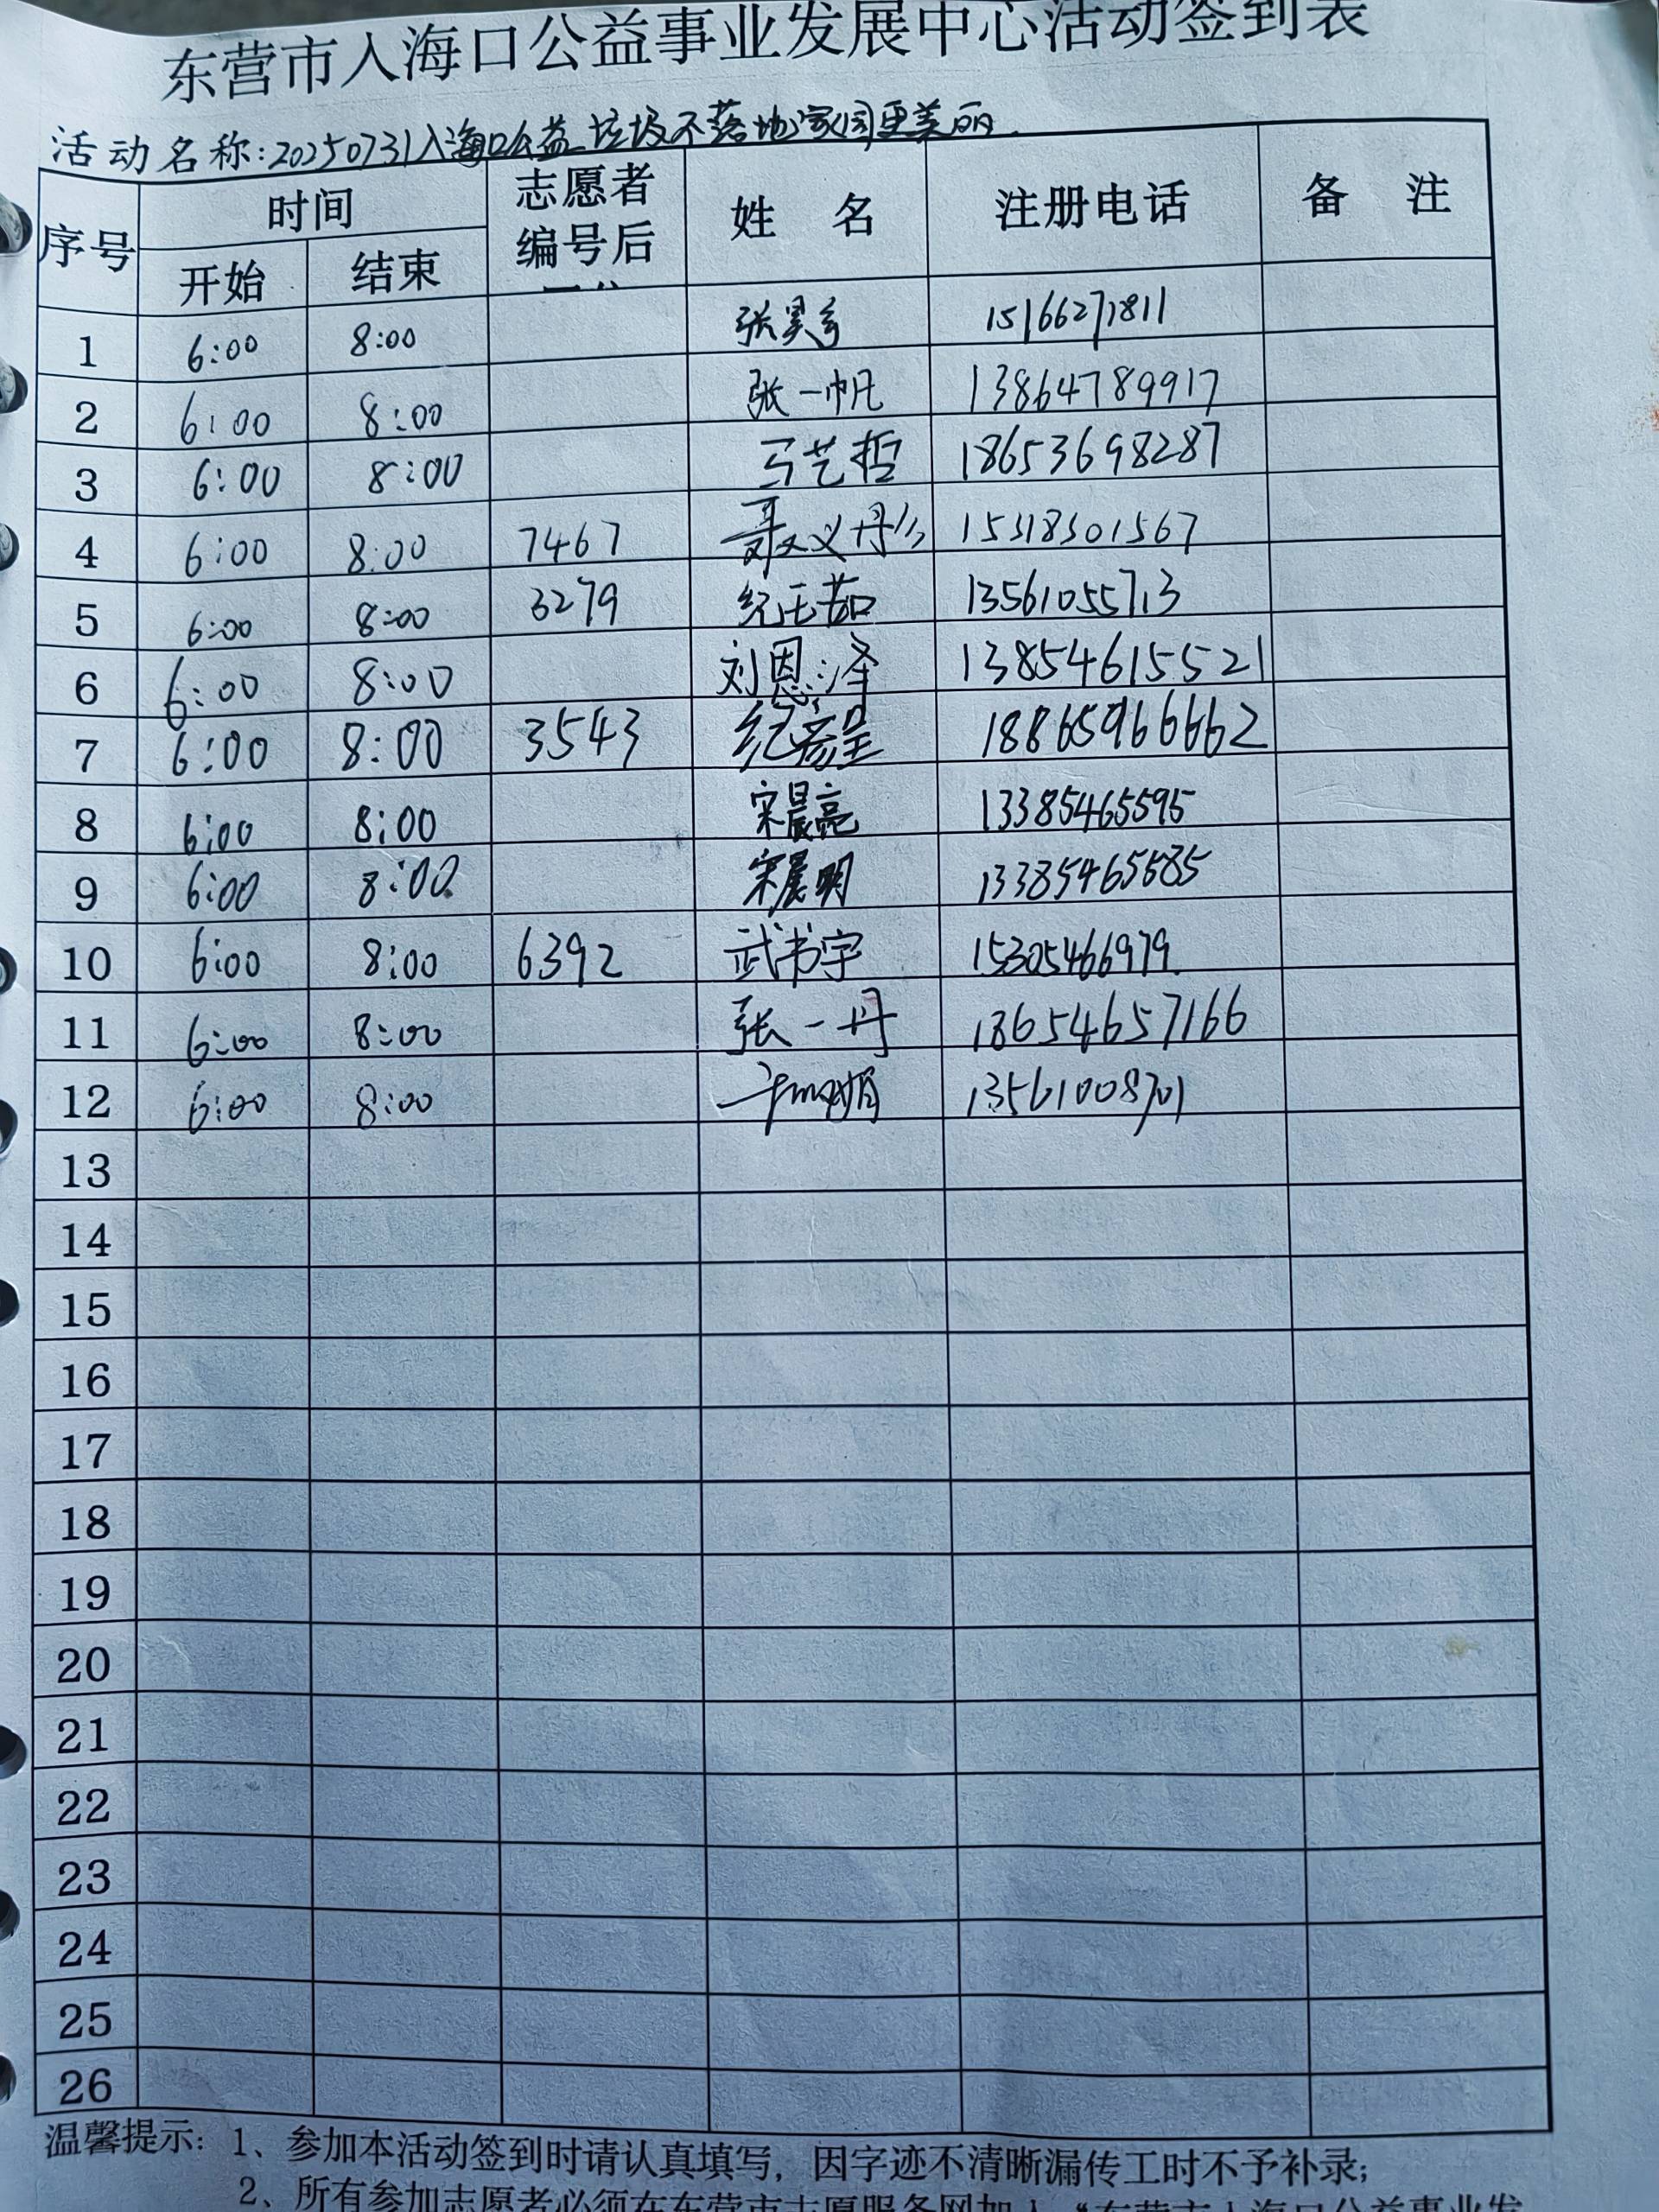 东营市入海口公益事业发展中心活动签到表
活动名称:20250731入海口公益垃圾不落地家园更美丽.
序号 时间 志愿者编号后 姓 名 注册电话 备 注
开始 结束
1 6:00 8:00 张昊 15166271811
2 6:00 8:00 张一帆 13864789917
3 6:00 8:00 马艺哲 18653698287
4 6:00 8:00 7467 15318301567
5 6:00 8:00 3279 纪玉茹 13561055713
6 6:00 8:00 刘恩泽 13854615521
7 6:00 8:00 3543 纪 18865966662
8 6:00 8:00 宋晨亮 13385465595
9 6:00 8:00 宋晨明 13385465585
10 6:00 8:00 6392 武书宇 15305466979
11 6:00 8:00 张一丹 18654657166
12 6:00 8:00 13561008701
13
14
15
16
17
18
19
20
21
22
23
24
25
26
温馨提示: 1、参加本活动签到时请认真填写, 因字迹不清晰漏传工时不予补录;
2、所有参加志愿者必须在东营市志愿服务网加入“东营市入海口公益事业发